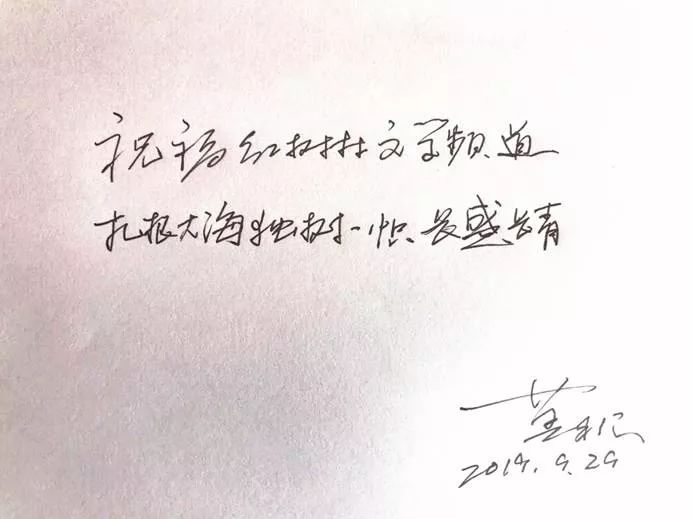 祝福红树林文学频道
扎根大海独树一帜长盛长青
2019.9.29